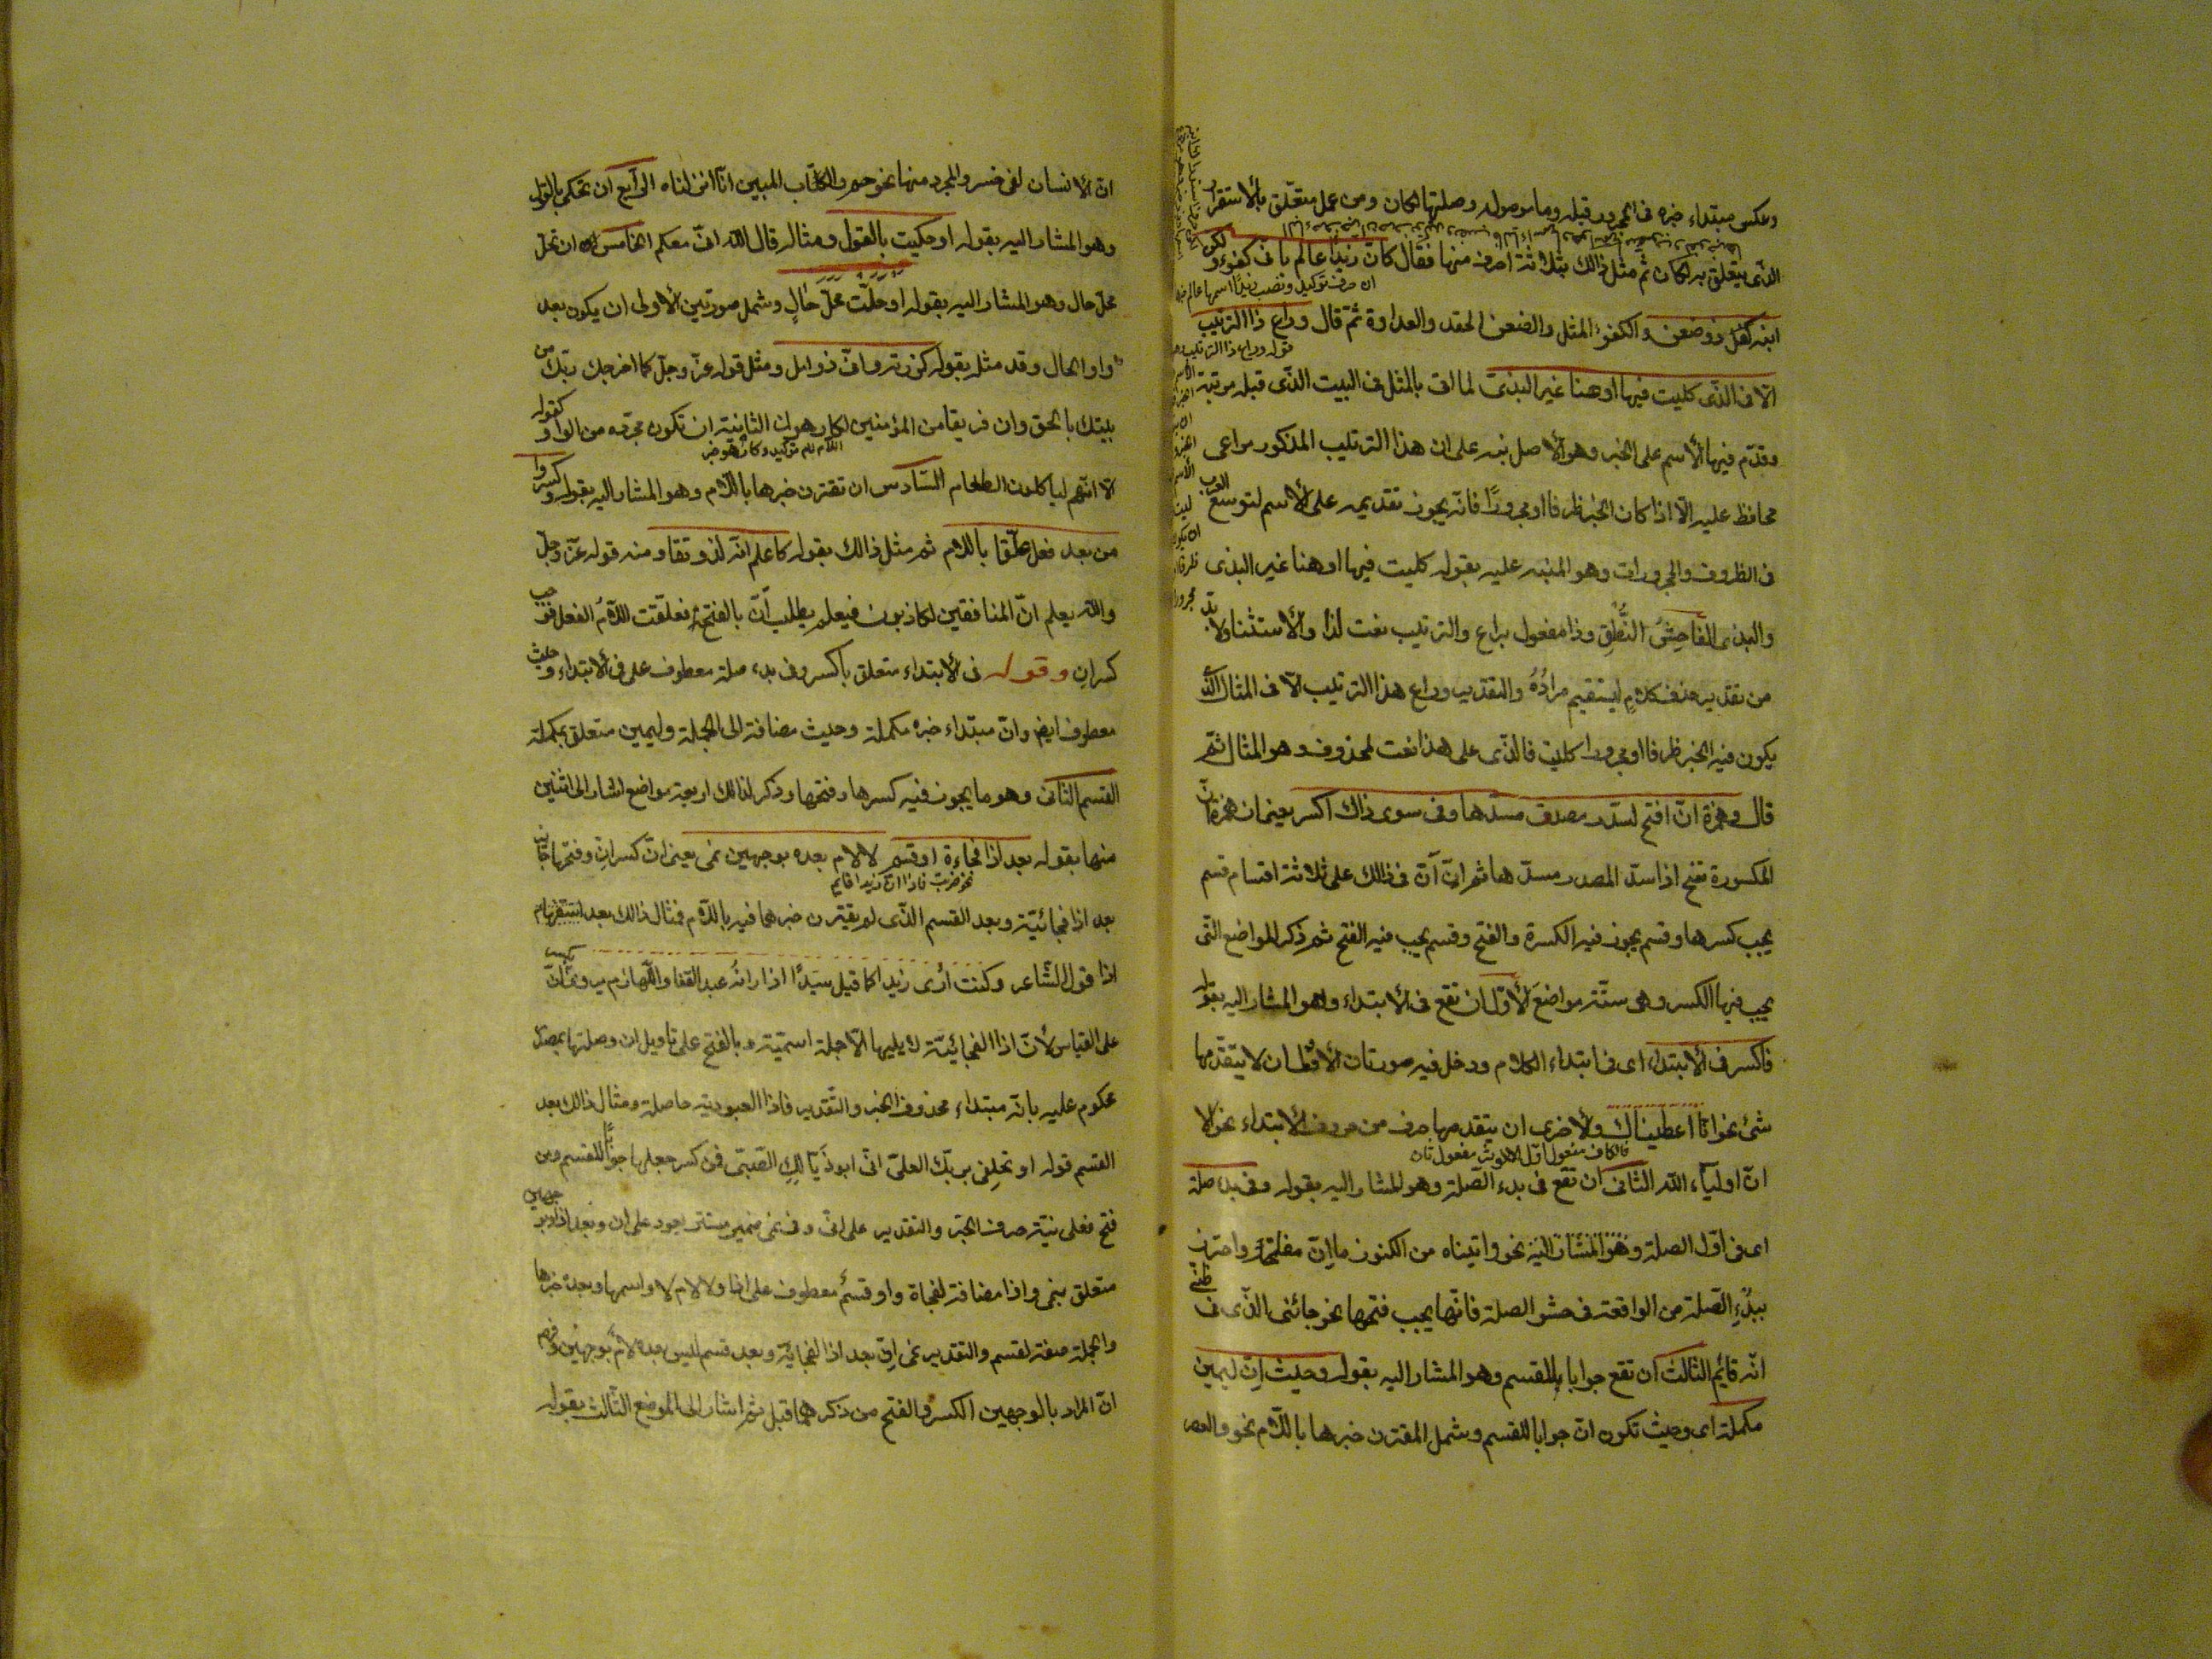 وعكس مبتداء خبره فى المجرور قبله وما موصوله وصلتها لكان ومن عمل متعلّق بالاستقرار
الذّى يتعلق به لكان ثم مثل ذالك بثلاثة احرف منها فقال كانّ زيدًا عالم بانى كفوء ولكن
ان حرف توكيد ونصب زيدًا اسمها عالم خبرها
ابنه ذو ضغن والكفؤ المثل والضغن الحقد والعداوة ثم قال وراع ذا الترتيب
الّا فى الذّى كليت فيها او هنا غير البذىّ لما اتى بالمثل فى البيت الذّى قبله مرتبة
وقدّم فيها الأسم على الخبر وهو الأصل نبه على ان هذا الترتيب المذكور مراعى
محافظ عليه الّا اذا كان الخبر ظرفا او مجرورًا فانّه يجوز تقديمه على الأسم لتوسع العرب
فى الظروف والمجرورات وهو المنبه عليه بقوله كليت فيها او هنا غير البذى
والبذى الفَاحِشُ النُّطْقِ وذا مفعول براع والترتيب نعت لذا والأستثنا ولا بدّ
من تقدير حذف كلامٍ ليستقيم مرادُهُ والتقدير وراع هذا الترتيب الّا فى المثال الّذى
يكون فيه الخبر ظرفا او مجرورا كليت فالذّى على هذا نعت لمحذوف وهو المثال ثمّ
قال وهمزة انّ افتح لسدّ مصدر مسدّها وفى سوى ذاك اكسر يعنى ان همزة انّ
المكسورة تفتح اذا سدّ المصدر مسدّها ثم انّ أنّ فى ذالك على ثلاثة اقسام قسم
يجب كسرها وقسم يجوز فيه الكسرة والفتح وقسم يجب فيه الفتح ثم ذكر المواضع التّى
يجب فيها الكسر وهى ستّة مواضعَ الأوّل ان تقع فى الأبتداء وهو المشار اليه بقوله
فاكسر فى الأبتداء اى فى ابتداء الكلام ودخل فيه صورتان الأولى ان لا يتقدّمها
شئ نحو انّا اعطيناك والأخرى ان يتقدمها حرف من حروف الأبتداء نحو الا
فالكاف مفعول اوّل الكوثر مفعول ثان
انّ اولياء الله الثانى ان تقع فى بدء الصّلة وهو المشار اليه بقوله وفى بدء صلة
اى فى اوّل الصلة وهو المشار اليه نحو واتيناه من الكنوز ما اِنّ مفاتحه واحترز
ببدْءِ الصّلة من الواقعة فى حشو الصلة فانّها يجب فتحها نحو جائنى الذّى فى ظنّى
انّه قائمٌ الثالث ان تقع جوابا للقسم وهو المشار اليه بقوله وحيث اِنّ ليمين
مكملة اى وحيث تكون انّ جوابا للقسم وشمل المقترن خبرها بالّلام نحو والعصر
انّ الأنسان لفى خسر والمجرد منها نحو حم والكتاب المبين انّا انزلناه الرّابع ان تحكى بالقول
وهو المشار اليه بقوله او حكيت بالقول ومثاله قال الله انّى معكم الخامس ان تحلّ
محلّ حال وهو المشار اليه بقوله او حلّت محلّ حالٍ وشمل صورتين الأولى ان يكون بعد
واو الحال وقد مثل بقوله كزرته وانّى ذو امل ومثل قوله عزّ وجلّ كما اخرجك ربّك من
بيتك بالحق وان فريقا من المؤمنين لكارهون الثانية ان تكون مجرّدة من الواو كقوله
اللّام لام توكيد وكارهو خبر
الّا انّهم ليأكلون الطعام السّادس ان تقترن خبرها بالّلام وهو المشار اليه بقوله وكسروا
من بعد فعل علّقا باللام ثم مثل ذالك بقوله كاعلم انّه لذو تقا ومنه قوله عزّ وجلّ
والله يعلم انّ المنافقين لكاذبون فيعلم يطلب أنّ بالفتح فعلّقت اللّامُ الفعل فوجب
كسران وقوله فى الأبتداء متعلق باكسر وفى بدء صلة معطوف على فى الأبتداء وحيث
معطوف ايضا وانّ مبتداء خبره مكملة وحيث مضافة الى الجملة وليمين متعلق بمكملة
القسم الثّانى وهو ما يجوز فيه كسرها وفتحها وذكر لذالك اربعة مواضع اشار الى اثنين
منها بقوله بعد اذا فجاءة او قسم لا لام بعده بوجهين نمى يعنى انّ كسر انّ وفتحها جائز
نحو خرجت فاذا انّ زيدا قائم
بعد اذا فجائيّة وبعد القسم الذّى لم يقترن خبرها فيه باللّام فمثال ذالك بعد
اذا قول الشّاعر وكنت أرى زيدا كما قيل سيّدًا اذا انّه عبد القفا واللّهازم يروى بكسر انّ
على القياس لأنّ اذا الفجائيّة لا يليها الّا جملة اسميّة وبالفتح على تأويل ان وصلتها بمصدر
محكوم عليه بانّه مبتداء محذوف الخبر والتّقدير فاذا العبودية حاصلة ومثال ذالك بعد
القسم قوله او تحلِفى بربّك العلىّ انّى ابو ذَيّالِكِ الصّبىّ فمن كسر جعلها جوابًا للقسم ومن
فتح فعلى نيّة حرف الجرّ والتقدير على انّى وفى نمى ضمير مستتر يعود على ان وبعد اذا وبوجهين
متعلق بنمى واذا مضافة لفجاة واو قسمٌ معطوف على اذا ولا لام لا واسمها وبعده خبرها
والجملة صفة لقسم والتقدير نمى اِنّ بعد اذا الفجاية وبعد قسم ليس بعده لامٌ بوجهين وفهم
انّ المراد بالوجهين الكسر والفتح من ذكرهما قبل ثم اشار الى الموضع الثّالث بقوله